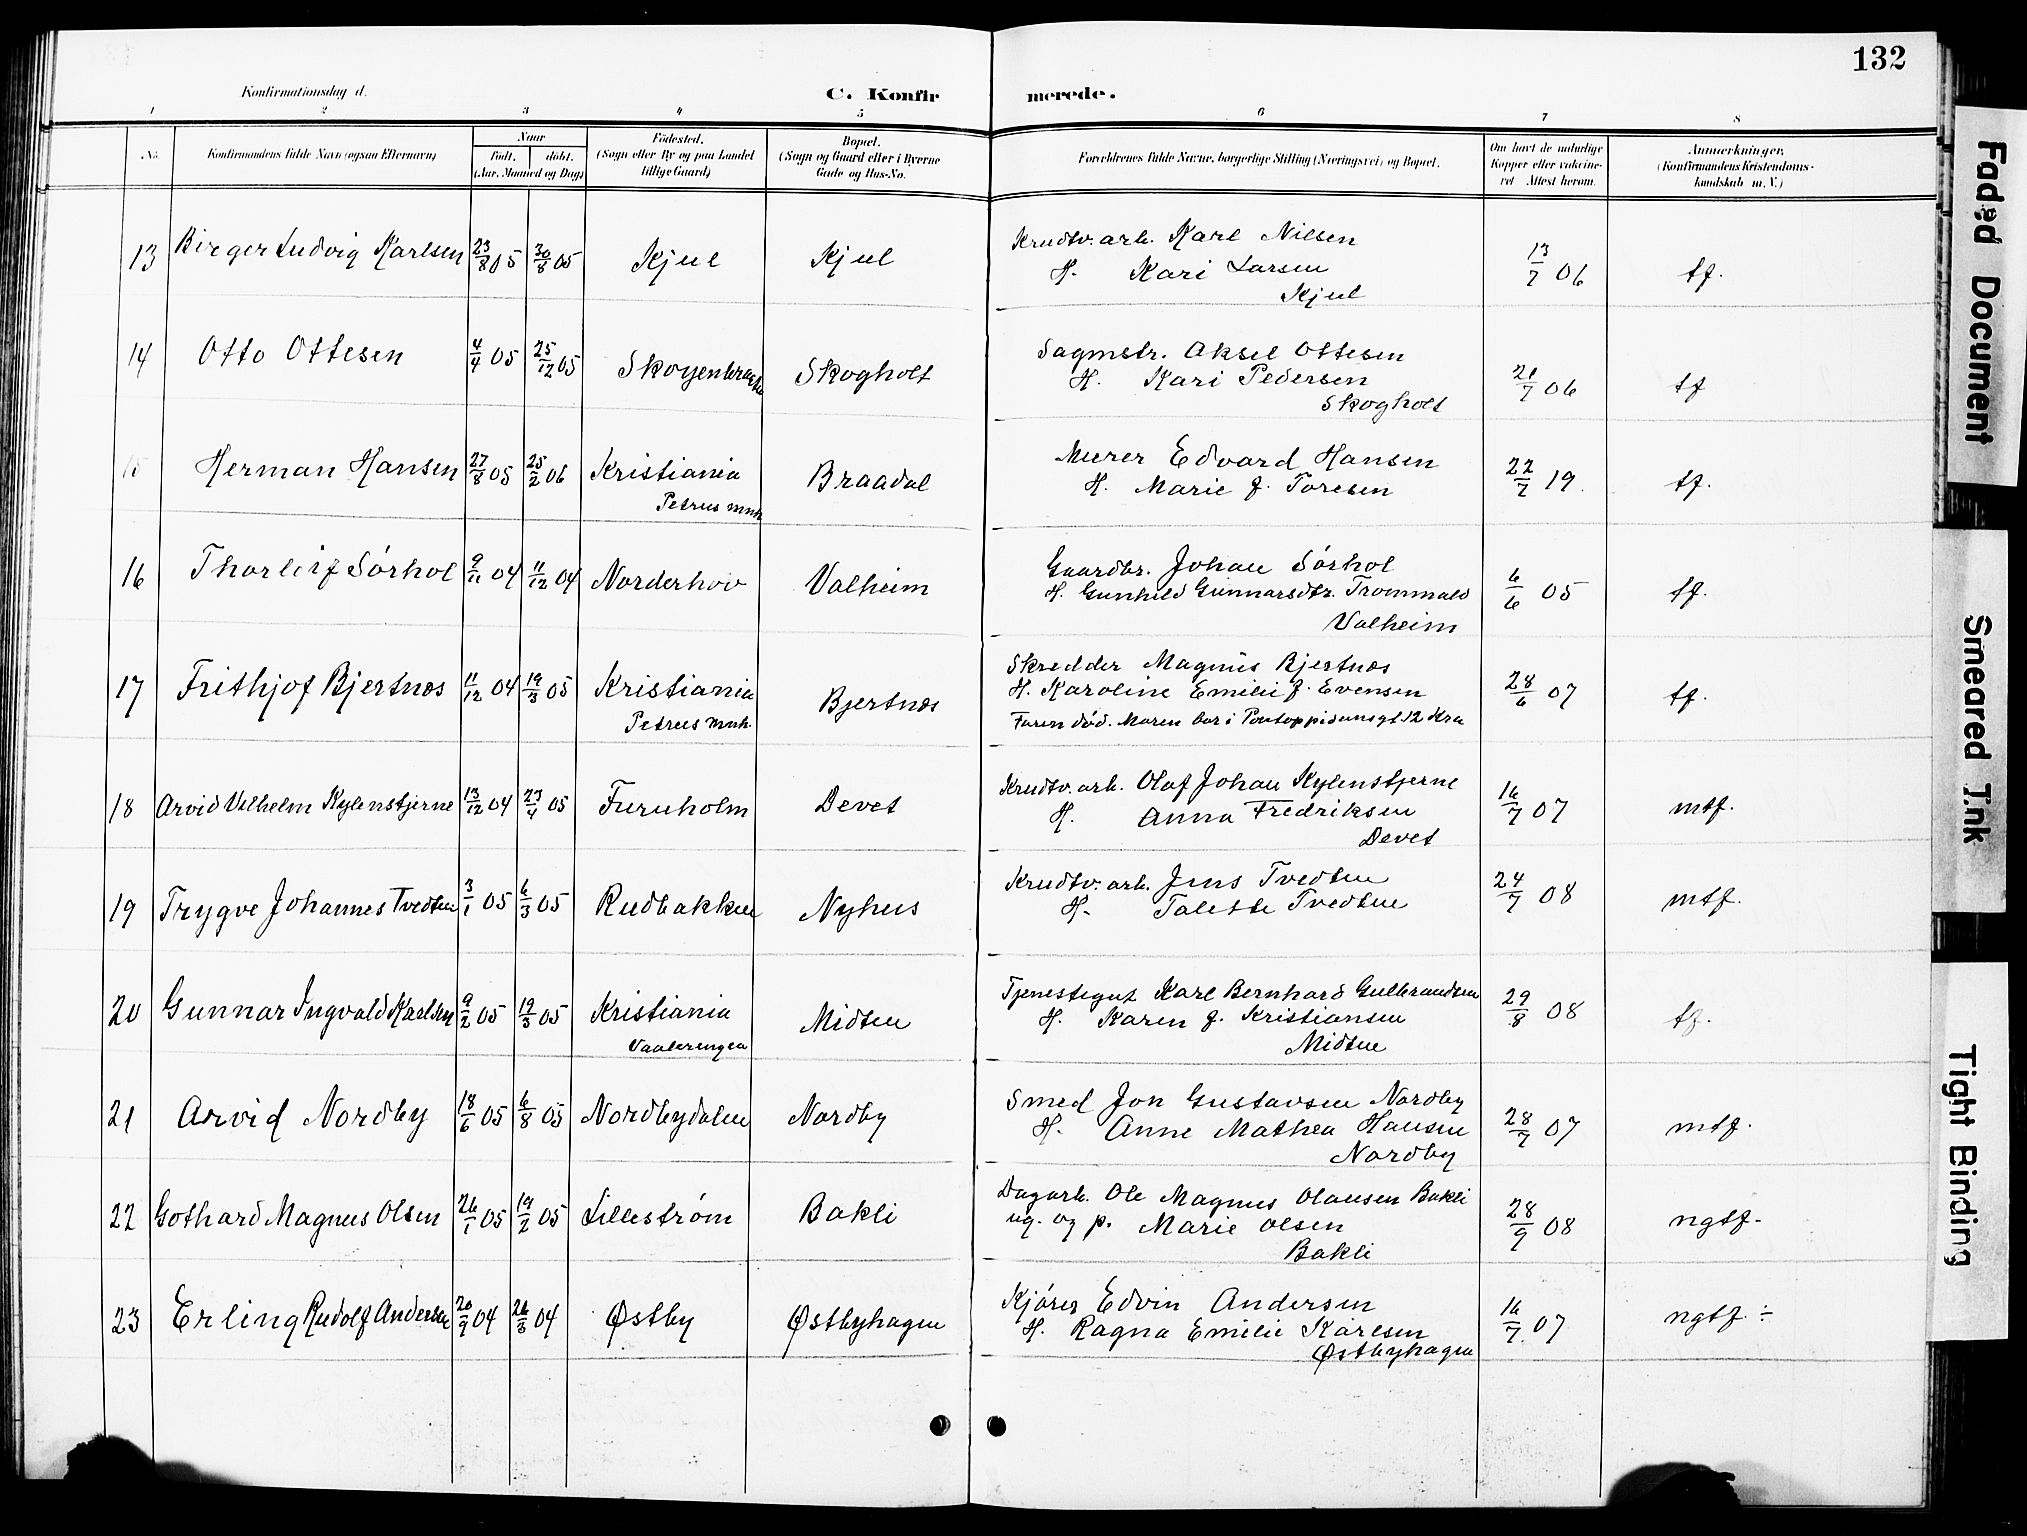 132
Konfirmationsdag d.
C. Konfirmerede.
1 2 3 4 5 6 7 8
No. Konfirmandens fulde Navn (ogsaa Efternavn) Naar født. døbt. (Aar, Maaned og Dag) Fødested. (Sogn eller By og paa Landet tillige Gaard) Bopæl. (Sogn og Gaard eller i Byerne Gade og Hus-No. Forældrenes fulde Navne, borgerlige Stilling (Næringsvei) og Bopæl. Om havt de naturlige Kopper eller vaccineret Attest herom. Anmærkninger, (Konfirmandens Kristendomskundskab m. V.)
13 Birger Ludvig Karlsen 23/8 05 30/8 05 Kjul Kjul Krudtv. arb. Karl Nilsen 13/7 06 tf.
H. Kari Larsen
Kjul
14 Otto Ottesen 4/4 05 25/12 05 Skøyenbrække Skogholt Sagmstr. Aksel Ottesen 21/7 06 tf
H. Kari Pedersen
Skogholt
15 Herman Hansen 27/8 05 25/2 06 Kristiania Braadal Murer Edvard Hansen 22/7 19. tf.
Petrus mnh H. Marie f. Toresen
16 Thorleif Sórhol 9/11 04 11/12 04 Norderhov Valheim Gaardbr. Johan Sórhol 6/6 05 tf.
H. Gunhild Gunnarsdtr. Trommald
Valheim
17 Frithjof Bjertnæs 11/12 04 19/3 05 Kristiania Bjertnæs Skredder Magnus Bjertnæs 28/6 07 tf.
Petrus mnh. H. Karoline Emilie f. Evensen
Faren död. Moren bor i Pontoppidansgt 12 Kra
18 Arvid Vilhelm Kylenstjerne 13/12 04 23/4 05 Furuholm Devet Krudtv. arb. Olaf Johan Kylenstjerne 16/7 07 mtf.
H. Anna Fredriksen
Devet
19 Trygve Johannes Tvedten 3/1 05 6/3 05 Rudbakken Nyhus Krudtv. arb. Jens Tvedten 24/7 08 mtf.
H. Talette Tvedten
20 Gunnar Ingvald Karlsen 9/2 05 19/3 05 Kristiania Midten Tjenestegut Karl Bernhard Gulbrandsen 29/8 08 tf.
Vaalerengen H. Karen f. Kristiansen
Midten
21 Arvid Nordby 18/6 05 6/8 05 Nordbydalen Nordby Smed Jon Gustavsen Nordby 28/7 07 mtf.
H. Anne Mathea Hansen
Nordby
22 Gothard Magnus Olsen 26/1 05 19/2 05 Lillestrøm Bakli Dagarb. Ole Magnus Olausen Bakli 28/9 08 ngtf.
ug. og p. Marie Olsen
Bakli
23 Erling Rudolf Andersen 20/9 04 26/8 04 Østby Østbyhagen Kjórer Edvin Andersen 16/7 07 ngtf. ÷
H. Ragna Emilie Karlsen
Østbyhagen
Faded Document
Smeared Ink
Tight Binding